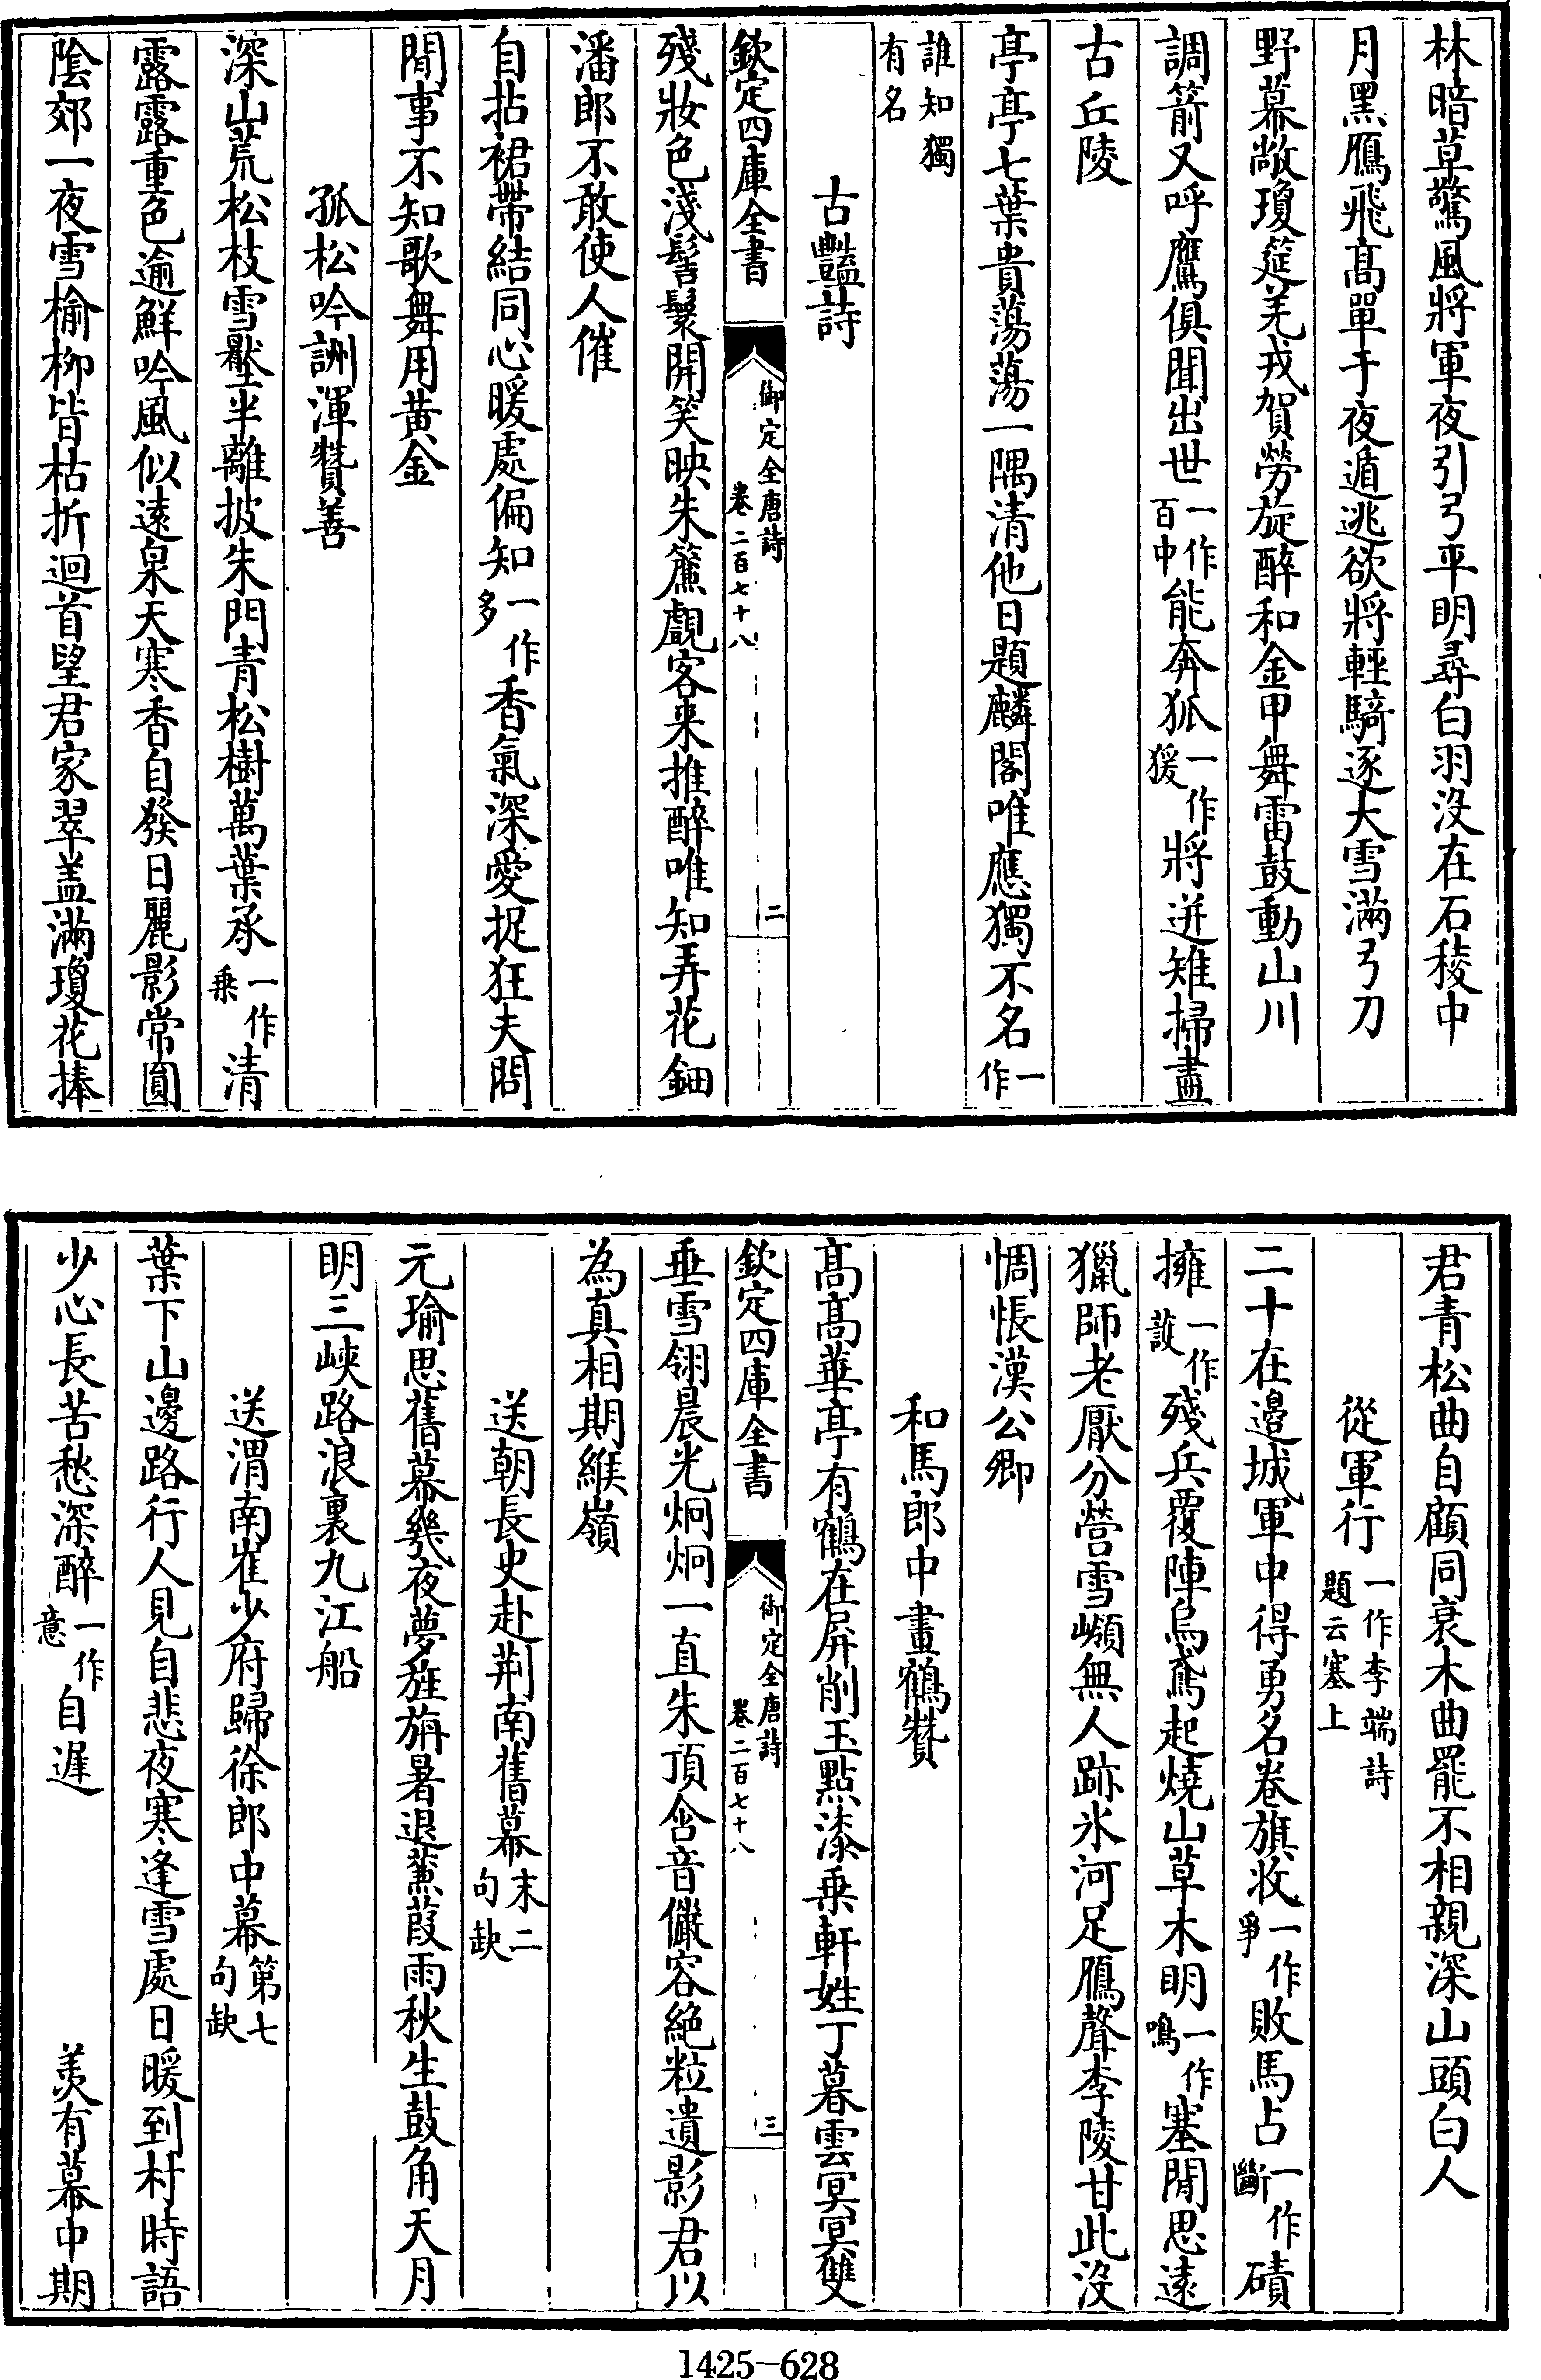 林暗草驚風將軍夜引弓平明尋白羽沒在石稜中
月黑鴈飛髙單于夜遁逃欲將輕騎逐大雪滿弓刀
野幕敞瓊筵羌戎賀勞旋醉和金甲舞雷鼓動山川
調箭又呼鷹俱聞出世一作百中能奔狐一作猨將迸雉掃盡
古丘陵
亭亭七葉貴蕩蕩一隅清他日題麟閣唯應獨不名一作
誰知獨有名
古豔詩
欽定四庫全書 御定全唐詩卷二百七十八 二
殘妝色淺髻鬟開笑映朱簾覷客来推醉唯知弄花鈿
潘郎不敢使人催
自拈裙帶結同心暖處偏知一作多香氣深愛捉狂夫問
閒事不知歌舞用黄金
孤松吟詶渾贊善
深山荒松枝雪壓半離披朱門青松樹萬葉承一作乗清
露露重色逾鮮吟風似遠泉天寒香自發日麗影常圓
陰郊一夜雪榆栁皆枯折迴首望君家翠盖滿瓊花捧
君青松曲自顧同衰木曲罷不相親深山頭白人
從軍行一作李端詩題云塞上
二十在邉城軍中得勇名卷旗收一作爭敗馬占一作斷磧
擁一作護殘兵覆陣烏鳶起燒山草木明一作鳴塞閒思遠
獵師老厭分營雪嶺無人跡氷河足鴈聲李陵甘此沒
惆悵漢公卿
和馬郎中畫鶴贊
髙髙華亭有鶴在屏削玉點漆乗軒姓丁暮雲冥冥雙
欽定四庫全書 御定全唐詩卷二百七十八 三
垂雪翎晨光炯炯一直朱頂含音儼容絶粒遺影君以
為真相期緱嶺
送朝長史赴荆南舊幕末二句缺
元瑜思舊幕幾夜夢旌旃暑退蒹葭雨秋生鼓角天月
明三峽路浪裏九江船
送渭南崔少府歸徐郎中幕第七句缺
葉下山邊路行人見自悲夜寒逢雪處日暖到村時語
少心長苦愁深醉一作意自遲 羨有幕中期
1425—628